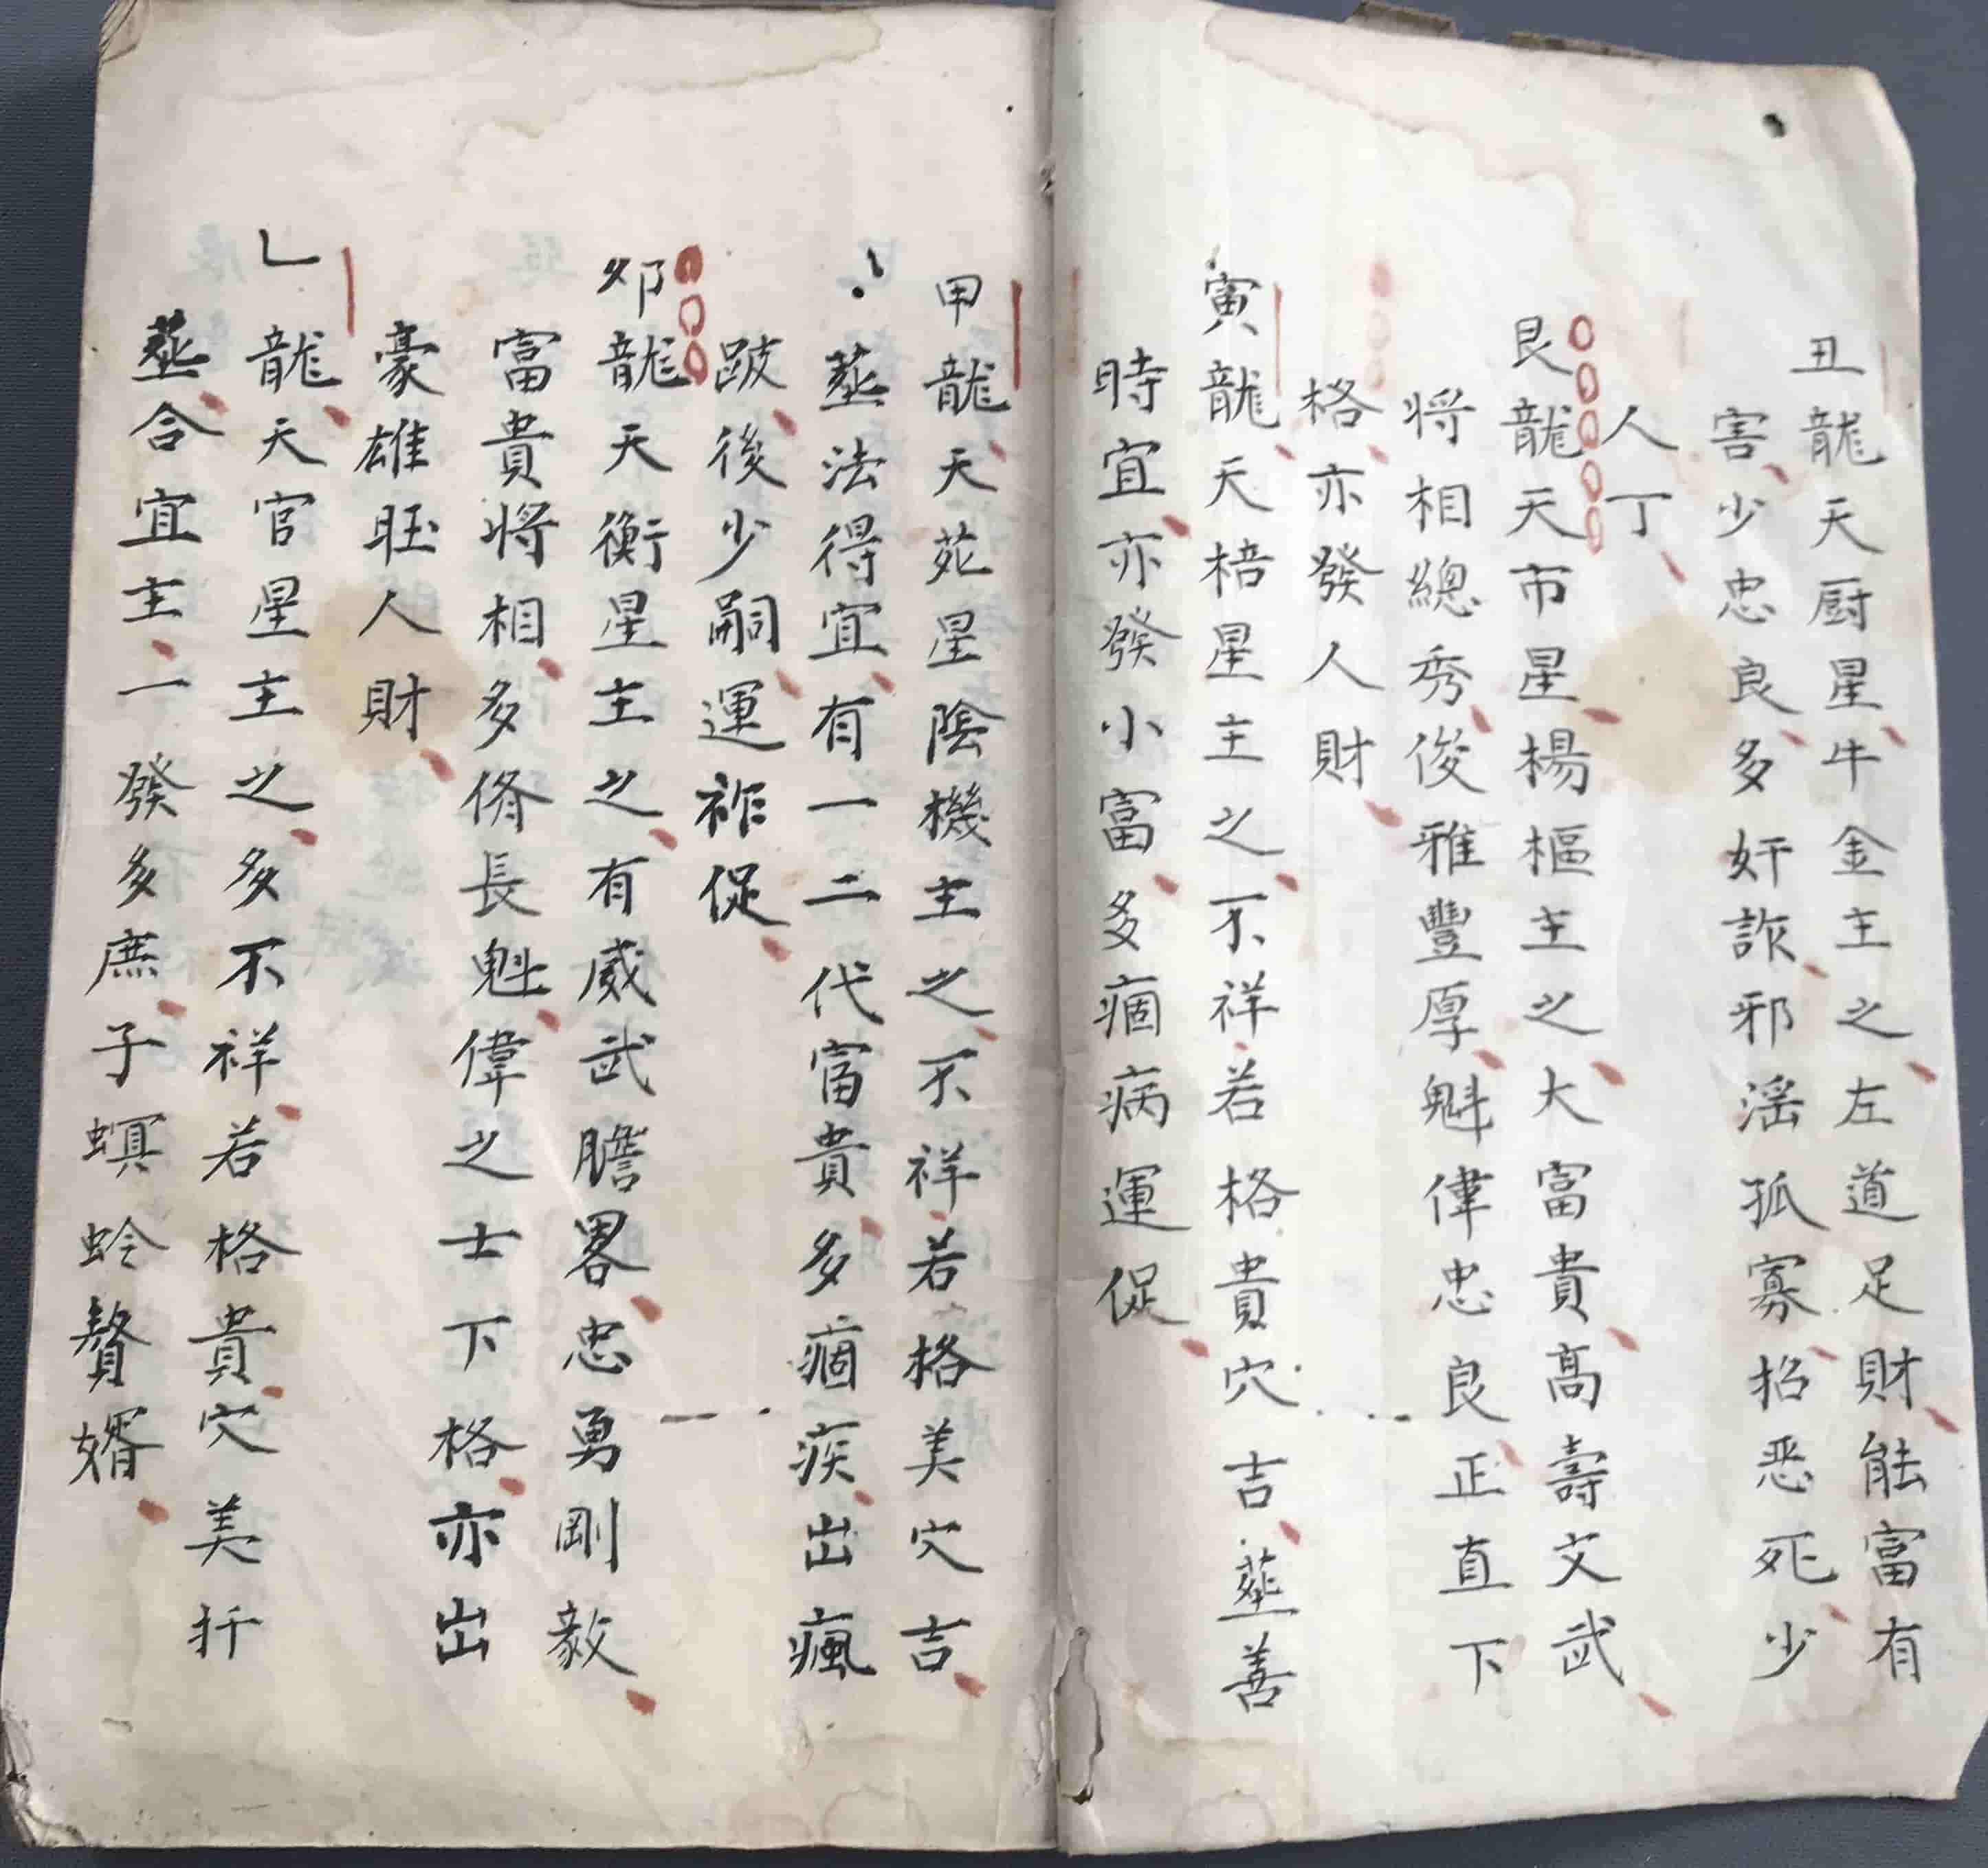 丑龍天厨星牛金主之左道足財能富有
害少忠良多奸詐邪滛孤寡招惡死少
人丁
艮龍天市星楊樞主之大富貴高壽文武
将相總秀俊雅豐厚魁偉忠良正直下
格亦發人財
寅龍天棓星主之不祥若格貴穴吉塟善
時宜亦發小富多痼病運促
甲龍天苑星陰機主之不祥若格美穴吉
塟法得宜有一二代富貴多痼疾出瘋
跛後少嗣運祚促
夘龍天衡星主之有威武膽畧忠勇剛毅
富貴将相多脩長魁偉之士下格亦出
豪雄旺人財
乚龍天官星主之多不祥若格貴穴美扦
塟合宜主一發多庶子螟蛉贅婿